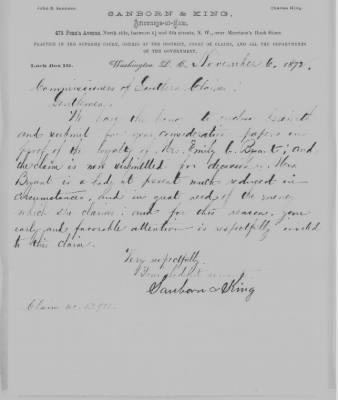 John B. Sanborn.
Charles King.
SANBORN & KING,
Attorneys-at-Law,
473 Penn'a Avenue, North side, between 4½ and 6th streets, N. W., over Morrison's Book Store
PRACTICE IN THE SUPREME COURT, COURTS OF THE DISTRICT, COURT OF CLAIMS, AND ALL THE DEPARTMENTS
OF THE GOVERNMENT.
Lock Box
Washington, D. C. November 6, 1872.
Commissioners of Southern Claims
Gentlemen
We have the honor to
and submit for your consideration papers in
proof of the loyalty of Mrs. Emily C. Bryant; and
the claim is now submitted for decision. Mrs
Bryant is a lady at present much reduced in
circumstances, and in great need of the money
which she claims; and for this reason, your
early and favorable attention is respectfully invited
to this claim.
Very respectfully
Your obedient
Sanborn & King
Claim no.